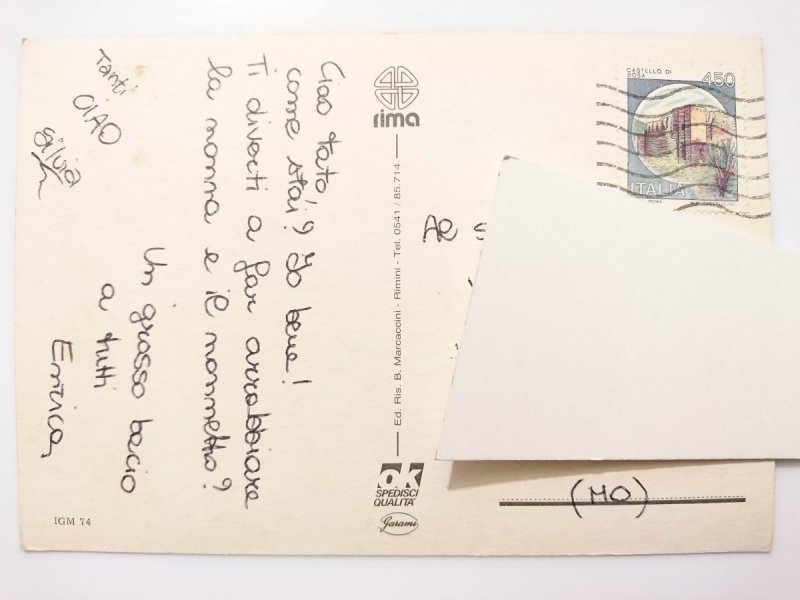 Ciao tato!
come stai? Io bene!
Ti diverti a far arrabbiare
la nonna e il nonnetto?
Un grosso bacio
a tutti
Enrica
Tanti
CIAO
Silvia
IGM 74
rima
Ed. Ris. B. Marcaccini - Rimini - Tel. 0541 / 85.714
ok
SPEDISCI
QUALITA'
Garami
CASTELLO DI
BOSA
450
ITALIA
ROMA
(MO)